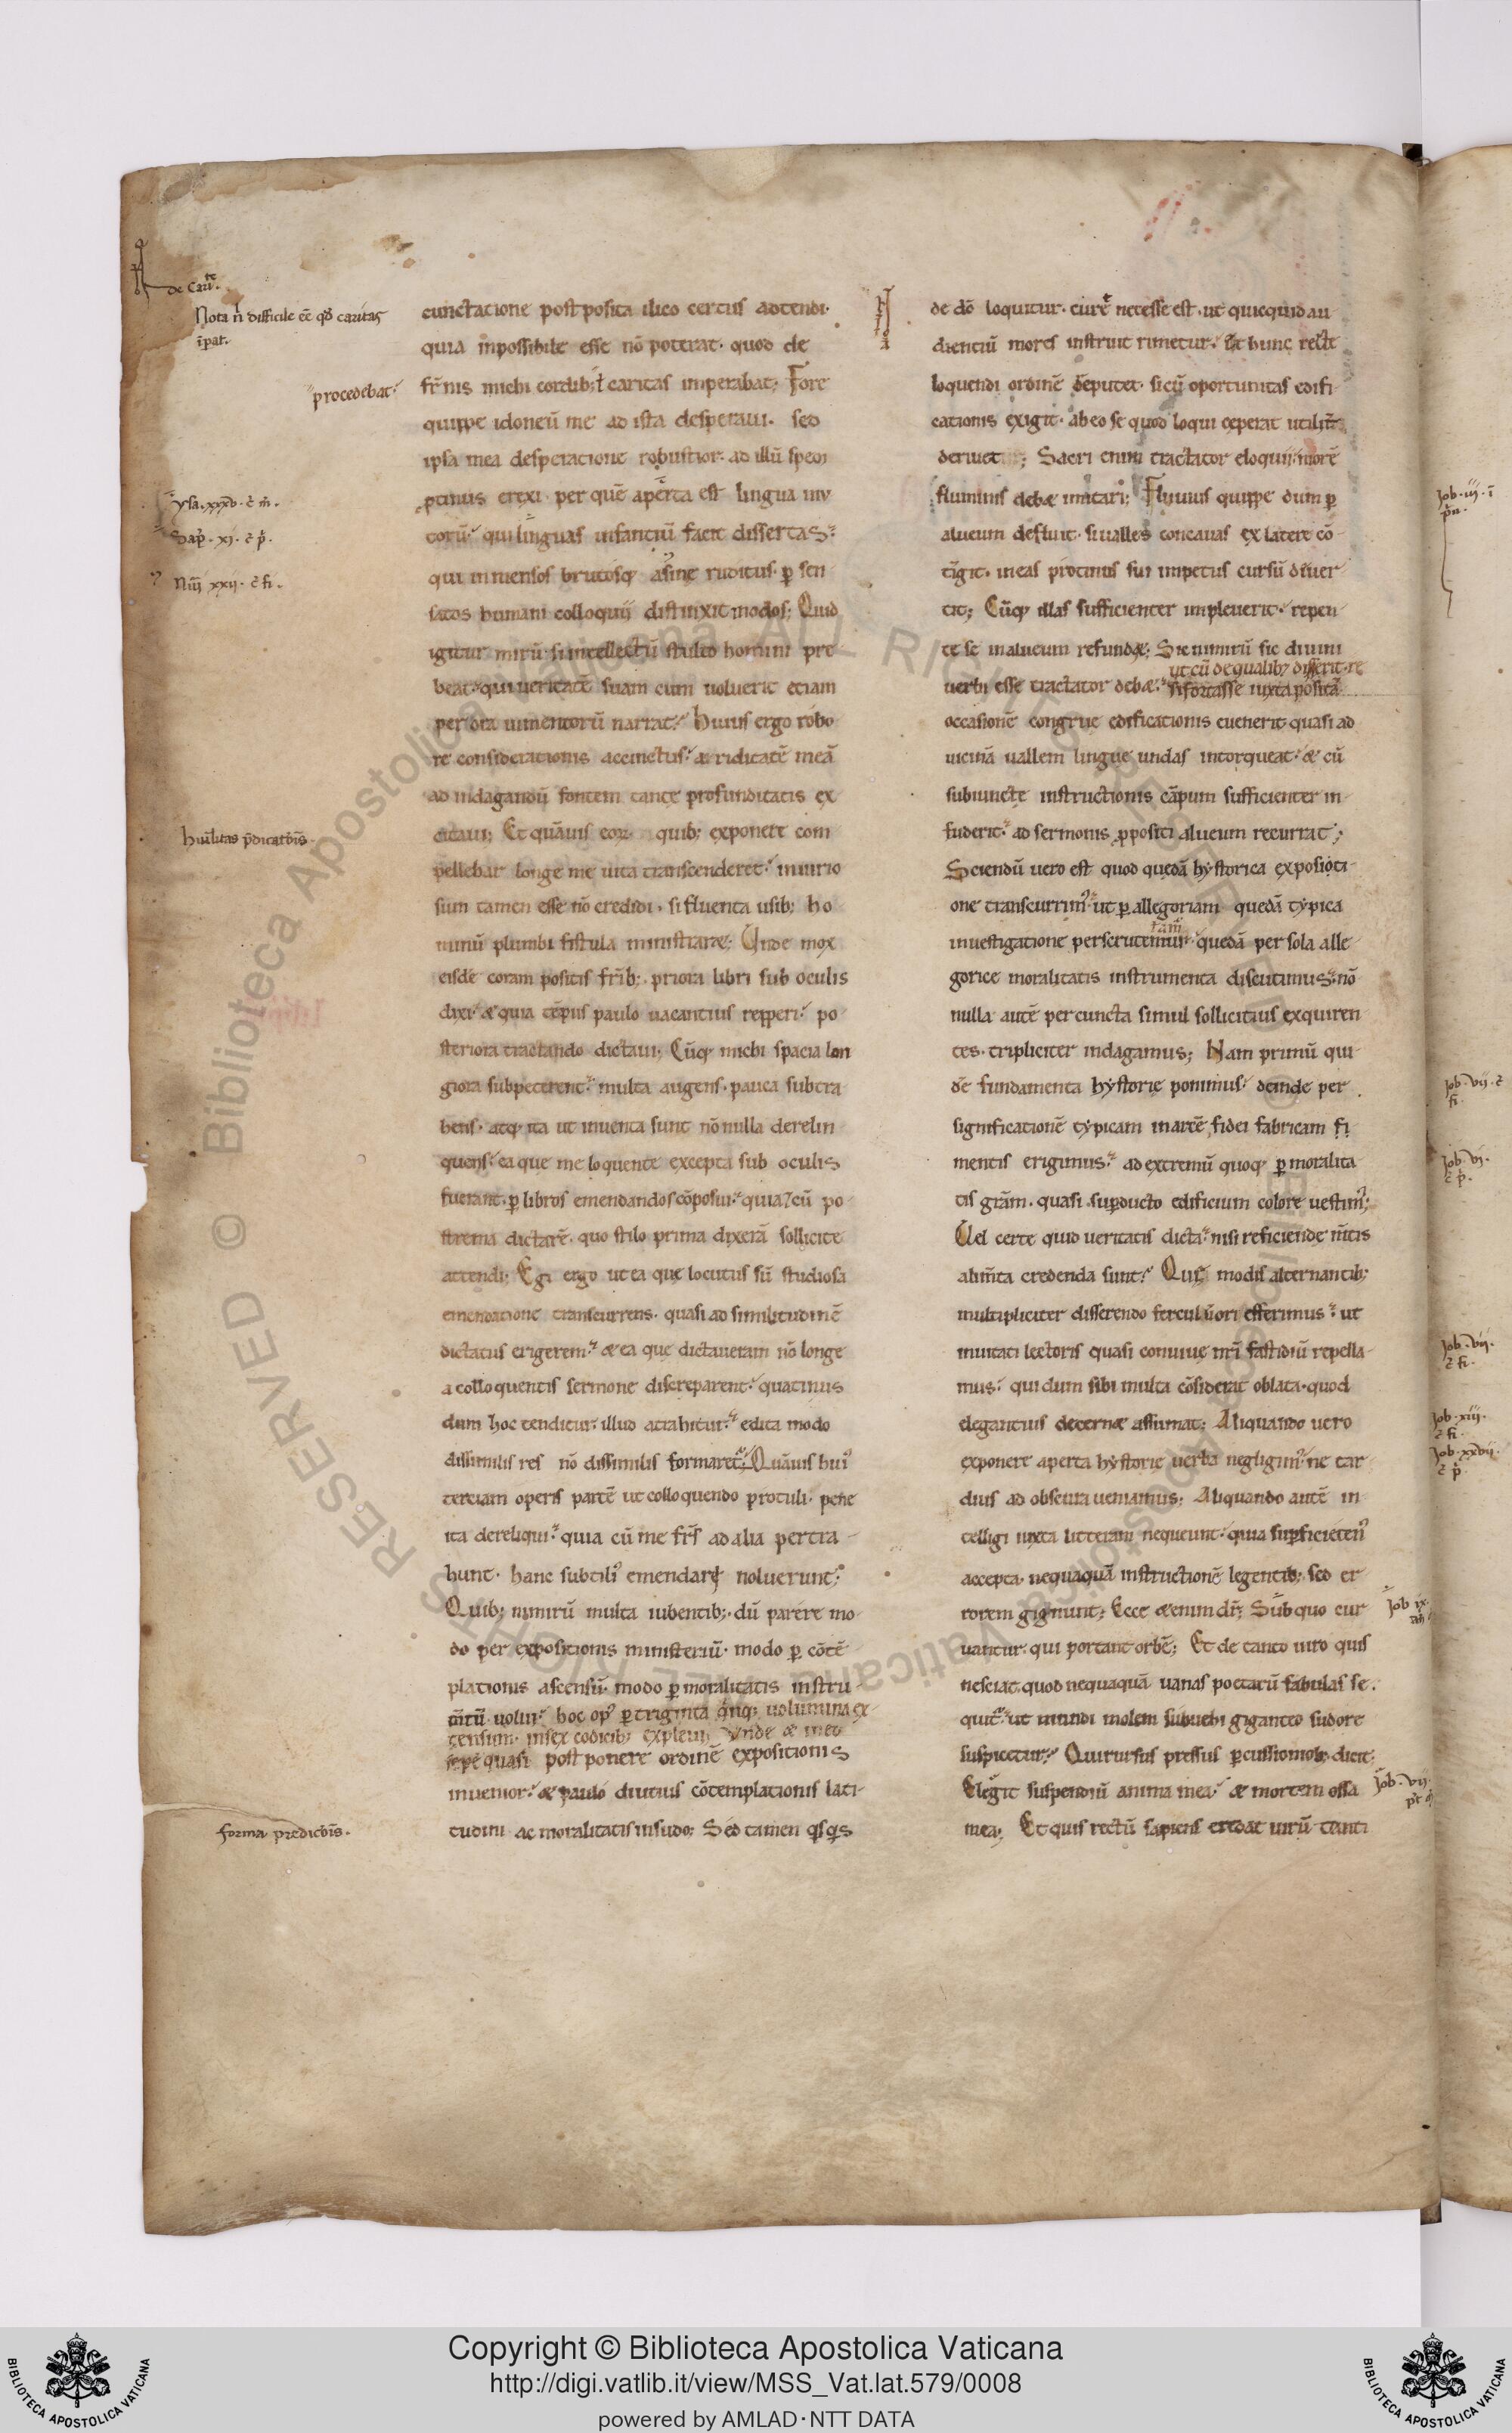 de Carite.
Nota ñ difficile eē qd caritas
īpat.
procedebat
ysa. xxxv. c̄ m̄.
Sap. xi. c̄ p̄.
Nu xxii. c̄ fi.
huilitas p̄dicatōis
forma predictōis.
cunctacione postposita ilico certus adtendi.
quia inpossibile esse nō poterat. quod de
fr̄nis michi cordib; ł caritas imperabat; Fore
quippe idoneū me ad ista desperaui. sed
ipsa mea desperacione robustior. ad illū spem
ꝓtinus erexi. per quē aperta est lingua mu
torū. qui linguas infantiū facit dissertas.
qui inmensos brutosq; asine ruditus. ꝑ sen
satos humani colloquii distinxit modos; Quid
igitur mirū. si intellectū stulto homini pre
beat. qui ueritatē suam cum uoluerit etiam
per ora iumentorū narrat; Huius ergo robo
re considerationis accinctus. ariditatē meā
ad indagandū fontem tantę profunditatis ex
citaui; Et quāuis eorꝫ quib; exponere com
pellebar longe me uita transcenderet. iniurio
sum tamen esse nō credidi. si fluenta usib; ho
minū plumbi fistula ministraræ; Unde mox
eisdē coram positis fr̄ib; priora libri sub oculis
dixi. & quia tēpus paulo uacantius repperi. po
steriora tractando dictaui. Cūq; michi spacia lon
giora subpeterent. multa augens. pauca subtra
hens. atq; ita ut inuenta sunt nō nulla derelin
quens. ea que me loquente excepta sub oculis
fuerant. ꝑ libros emendando cōposui. quia cū po
strema dictarē. quo stilo prima dixerā sollicite
attendi. Egi ergo ut ea que locutus sū studiosa
emendatione transcurrens. quasi ad similitudinē
dictatus erigerem. & ea que dictaueram nō longe
a colloquentis sermone discreparent. quatinus
dum hoc tenditur. illud atrahitur. edita modo
dissimilis res nō dissimilis formaret. Quāuis hui'
terciam operis partē ut colloquendo protuli. pene
ita dereliqui. quia cū me fr̄s ad alia pertra
hunt. hanc subtili' emendare noluerunt;
Quib; nimirū multa iubentib; dū parere mo
do per expositionis ministeriū. modo ꝑ cōtē
plationis ascensū. modo ꝑ moralitatis instru
m̄tū uolui. hoc op' ꝑ triginta & q̄nq; uolumina ex
tensum. in sex codicib; expleui. Unde & in eo
sepe quasi postponere ordinē expositionis
inuenior. & paulo diutius cōtemplationis lati
tudini ac moralitatis insudo; Sed tamen q̄sq̄s
de dō loquitur. curet necesse est. ut quicquid au
dientiū mores instruit rimetur. Et hunc recte
loquendi ordinē deputet. si cū oportunitas edifi
cationis exigit. ab eo se quod loqui ceperat utilit̄
deriuet; Sacri enim tractator eloquii. morē
fluminis debæ imitari; Fluuius quippe dum ꝑ
alueum defluit. si ualles concauas ex latere cō
tigit. in eas protinus sui impetus cursū diuer
tit; Cūq; illas sufficienter impleuerit. repen
te se in alueum refundæ; Sic nimirū sic diuini
uerbi esse tractator debæ. ut cū de qualib; disserit. re
si fortasse iuxta positā
occasionē congrue edificationis euenerit quasi ad
uicinā uallem lingue undas intorqueat. & cū
subiuncte instructionis cāpum sufficienter in
fuderit. ad sermonis ꝓpositi alueum recurrat;
Sciendū uero est quod quedā hystorica expositi
one transcurrim'. ut ꝑ allegoriam quedā typica
inuestigatione perscrutemur. quedā per sola alle
gorice moralitatis instrumenta discutimus. nō
nulla autē per cuncta simul sollicitius exquiren
tes. tripliciter indagamus; Nam primū qui
dē fundamenta hystorię ponimus. deinde per
significationē typicam in arcē fidei fabricam fi
mentis erigimus. ad extremū quoq; ꝑ moralita
tis grām. quasi suꝑducto edificium colore uestim';
Uel certe quid ueritatis dicta. nisi reficiende m̄tis
alim̄ta credenda sunt; Que modis alternantib;
multipliciter disserendo ferculū ori offerimus. ut
inuitati lectoris quasi conuiue nr̄i fastidiū repella
mus. qui dum sibi multa cōsiderat oblata. quod
elegantius decernæ assumat; Aliquando uero
exponere aperta hystorię uerba negligim'. ne tar
dius ad obscura ueniamus; Aliquando autē in
telligi iuxta litteram nequeunt. quia suꝑficieten'
accepta. nequaquā instructionē legentib; sed er
rorem gignunt; Ecce & enim dr̄; Sub quo cur
uantur. qui portant orbē; Et de tanto uiro quis
nesciat. quod nequaquā uanas poetarū fabulas se.
quit'. ut mundi molem subuehi giganteo sudore
suspicetur; Qui rursus pressus ꝑcussionib; dicit;
Elegit suspendiū anima mea. & mortem ossa
mea; Et quis rectū sapiens credat uirū tanti
Job. iii. ī
pn.
Job. vii. c̄
fi.
Job. vi.
c̄ p̄.
Job. vii.
c̄ fi.
Job. xiii.
c̄ fi.
Job. xxvii.
c̄ p̄
Job ix.
Job. vii.
© Biblioteca Apostolica Vaticana ALL RIGHTS RESERVED
Copyright © Biblioteca Apostolica Vaticana
http://digi.vatlib.it/view/MSS_Vat.lat.579/0008
powered by AMLAD·NTT DATA
BIBLIOTECA APOSTOLICA VATICANA
BIBLIOTECA APOSTOLICA VATICANA